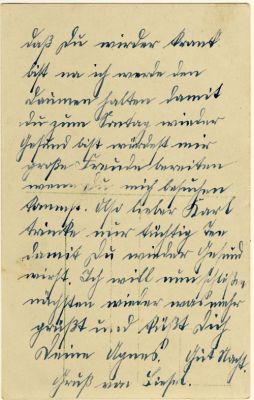 daß Du wieder krank
bist na ich werde den
Daumen halten damit
du zum Sontag wieder
Gesund bist würdest mir
große Freude bereiten
wenn Du mich besuchen
kommst. Also lieber Karl
trinke nur tüchtig Tee
damit Du wieder Gesund
wirst. Ich will nun schließen
nächsten wieder mal mehr
grüßt und küßt Dich
Deine Agnes. Gut Nacht.
Gruß von Liesel.